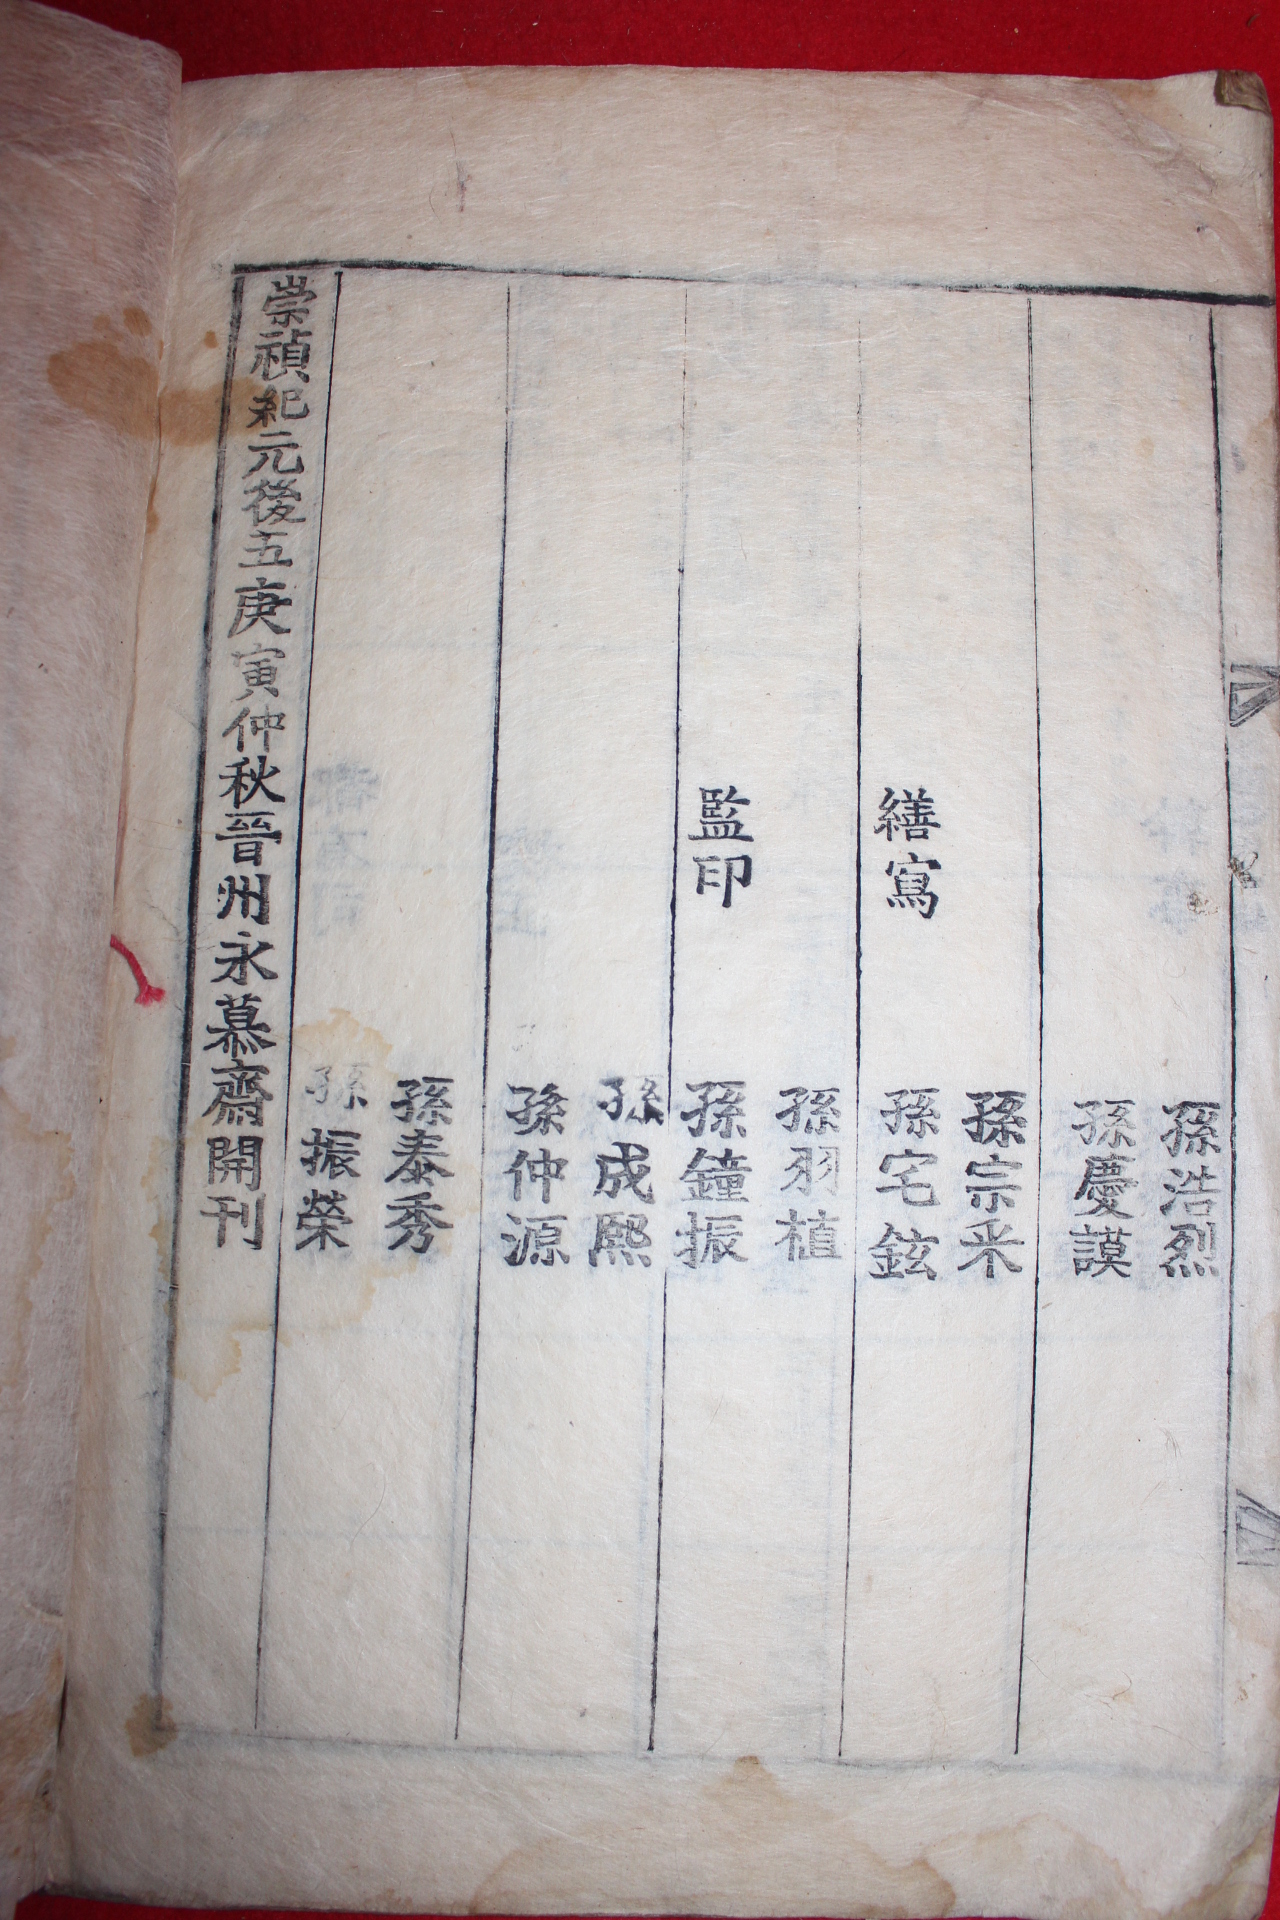 孫浩烈
孫慶謨
繕寫
孫宗釆
孫宅鉉
孫羽植
監印
孫鐘振
孫成熙
孫仲源
孫泰秀
孫振榮
崇禎紀元後五庚寅仲秋晉州永慕齋開刊